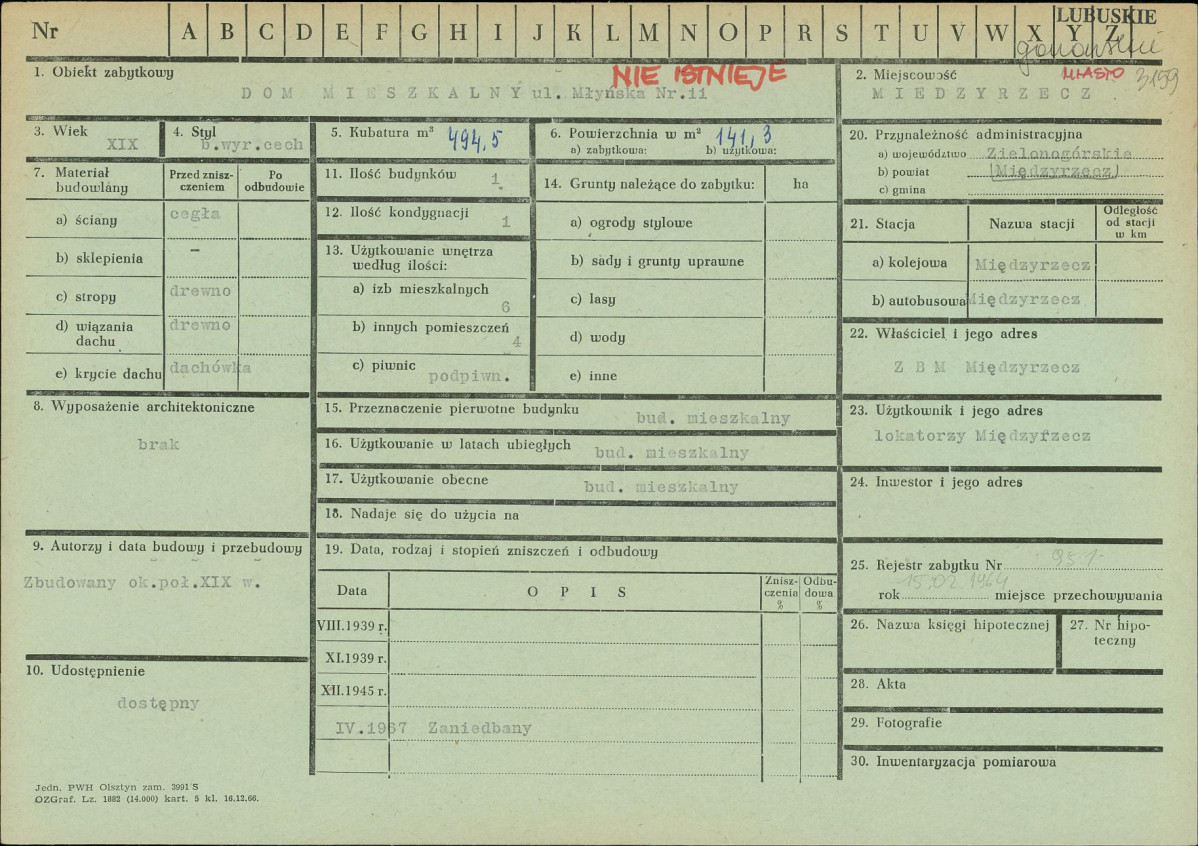 LUBUSKIE
Nr A B C D E F G H I J K L M N O P R S T U V W X Y Z
gorzowskie
1. Obiekt zabytkowy
NIE ISTNIEJE
DOM MIESZKALNY ul. Młyńska Nr.11
2. Miejscowość
MIASTO 3159
MIEDZYRZECZ
3. Wiek
XIX
4. Styl
b.wyr.cech
5. Kubatura m³ 494,5
6. Powierzchnia w m² 141,3
a) zabytkowa: b) użytkowa:
20. Przynależność administracyjna
a) województwo Zielonogórskie
b) powiat (Międzyrzecz)
c) gmina
7. Materiał budowlany
Przed znisz-
czeniem
Po
odbudowie
a) ściany cegła
b) sklepienia –
c) stropy drewno
d) wiązania
dachu
drewno
e) krycie dachu dachówka
11. Ilość budynków 1
12. Ilość kondygnacji 1
13. Użytkowanie wnętrza
według ilości:
a) izb mieszkalnych
6
b) innych pomieszczeń
4
c) piwnic
podpiwn.
14. Grunty należące do zabytku: ha
a) ogrody stylowe
b) sady i grunty uprawne
c) lasy
d) wody
e) inne
21. Stacja Nazwa stacji
Odległość
od stacji
w km
a) kolejowa Międzyrzecz
b) autobusowa Międzyrzecz
22. Właściciel i jego adres
Z B M Międzyrzecz
8. Wyposażenie architektoniczne
brak
15. Przeznaczenie pierwotne budynku bud. mieszkalny
16. Użytkowanie w latach ubiegłych bud. mieszkalny
17. Użytkowanie obecne bud. mieszkalny
18. Nadaje się do użycia na
23. Użytkownik i jego adres
lokatorzy Międzyrzecz
24. Inwestor i jego adres
9. Autorzy i data budowy i przebudowy
Zbudowany ok.poł.XIX w.
19. Data, rodzaj i stopień zniszczeń i odbudowy
Data OPIS
Znisz-
czenia
%
Odbu-
dowa
%
VIII.1939 r.
XI.1939 r.
XII.1945 r.
IV.1967 Zaniedbany
25. Rejestr zabytku Nr 951
15.02.1964
rok miejsce przechowywania
26. Nazwa księgi hipotecznej
27. Nr hipo-
teczny
28. Akta
29. Fotografie
30. Inwentaryzacja pomiarowa
10. Udostępnienie
dostępny
Jedn. PWH Olsztyn zam. 3991 S
OZGraf. Lz. 1882 (14.000) kart. 5 kl. 16.12.66.